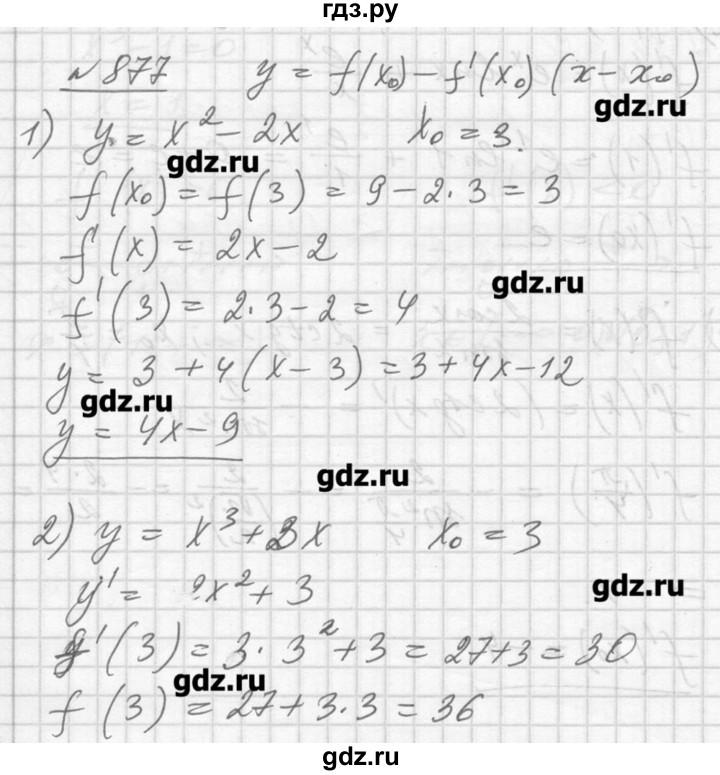 гдз.ру
№ 877 y = f(x₀) − f'(x₀) (x − x₀)
gdz.ru
1) y = x² − 2x x₀ = 3.
gdz.ru
f(x₀) = f(3) = 9 − 2·3 = 3
f'(x) = 2x − 2
gdz.ru
f'(3) = 2·3 − 2 = 4
y = 3 + 4(x − 3) = 3 + 4x − 12
gdz.ru
y = 4x − 9
gdz.ru
2) y = x³ + 3x x₀ = 3
gdz.ru
y' = x² + 3
y'(3) = 3·3² + 3 = 27 + 3 = 30
gdz.ru
f(3) = 27 + 3·3 = 36
gdz.ru